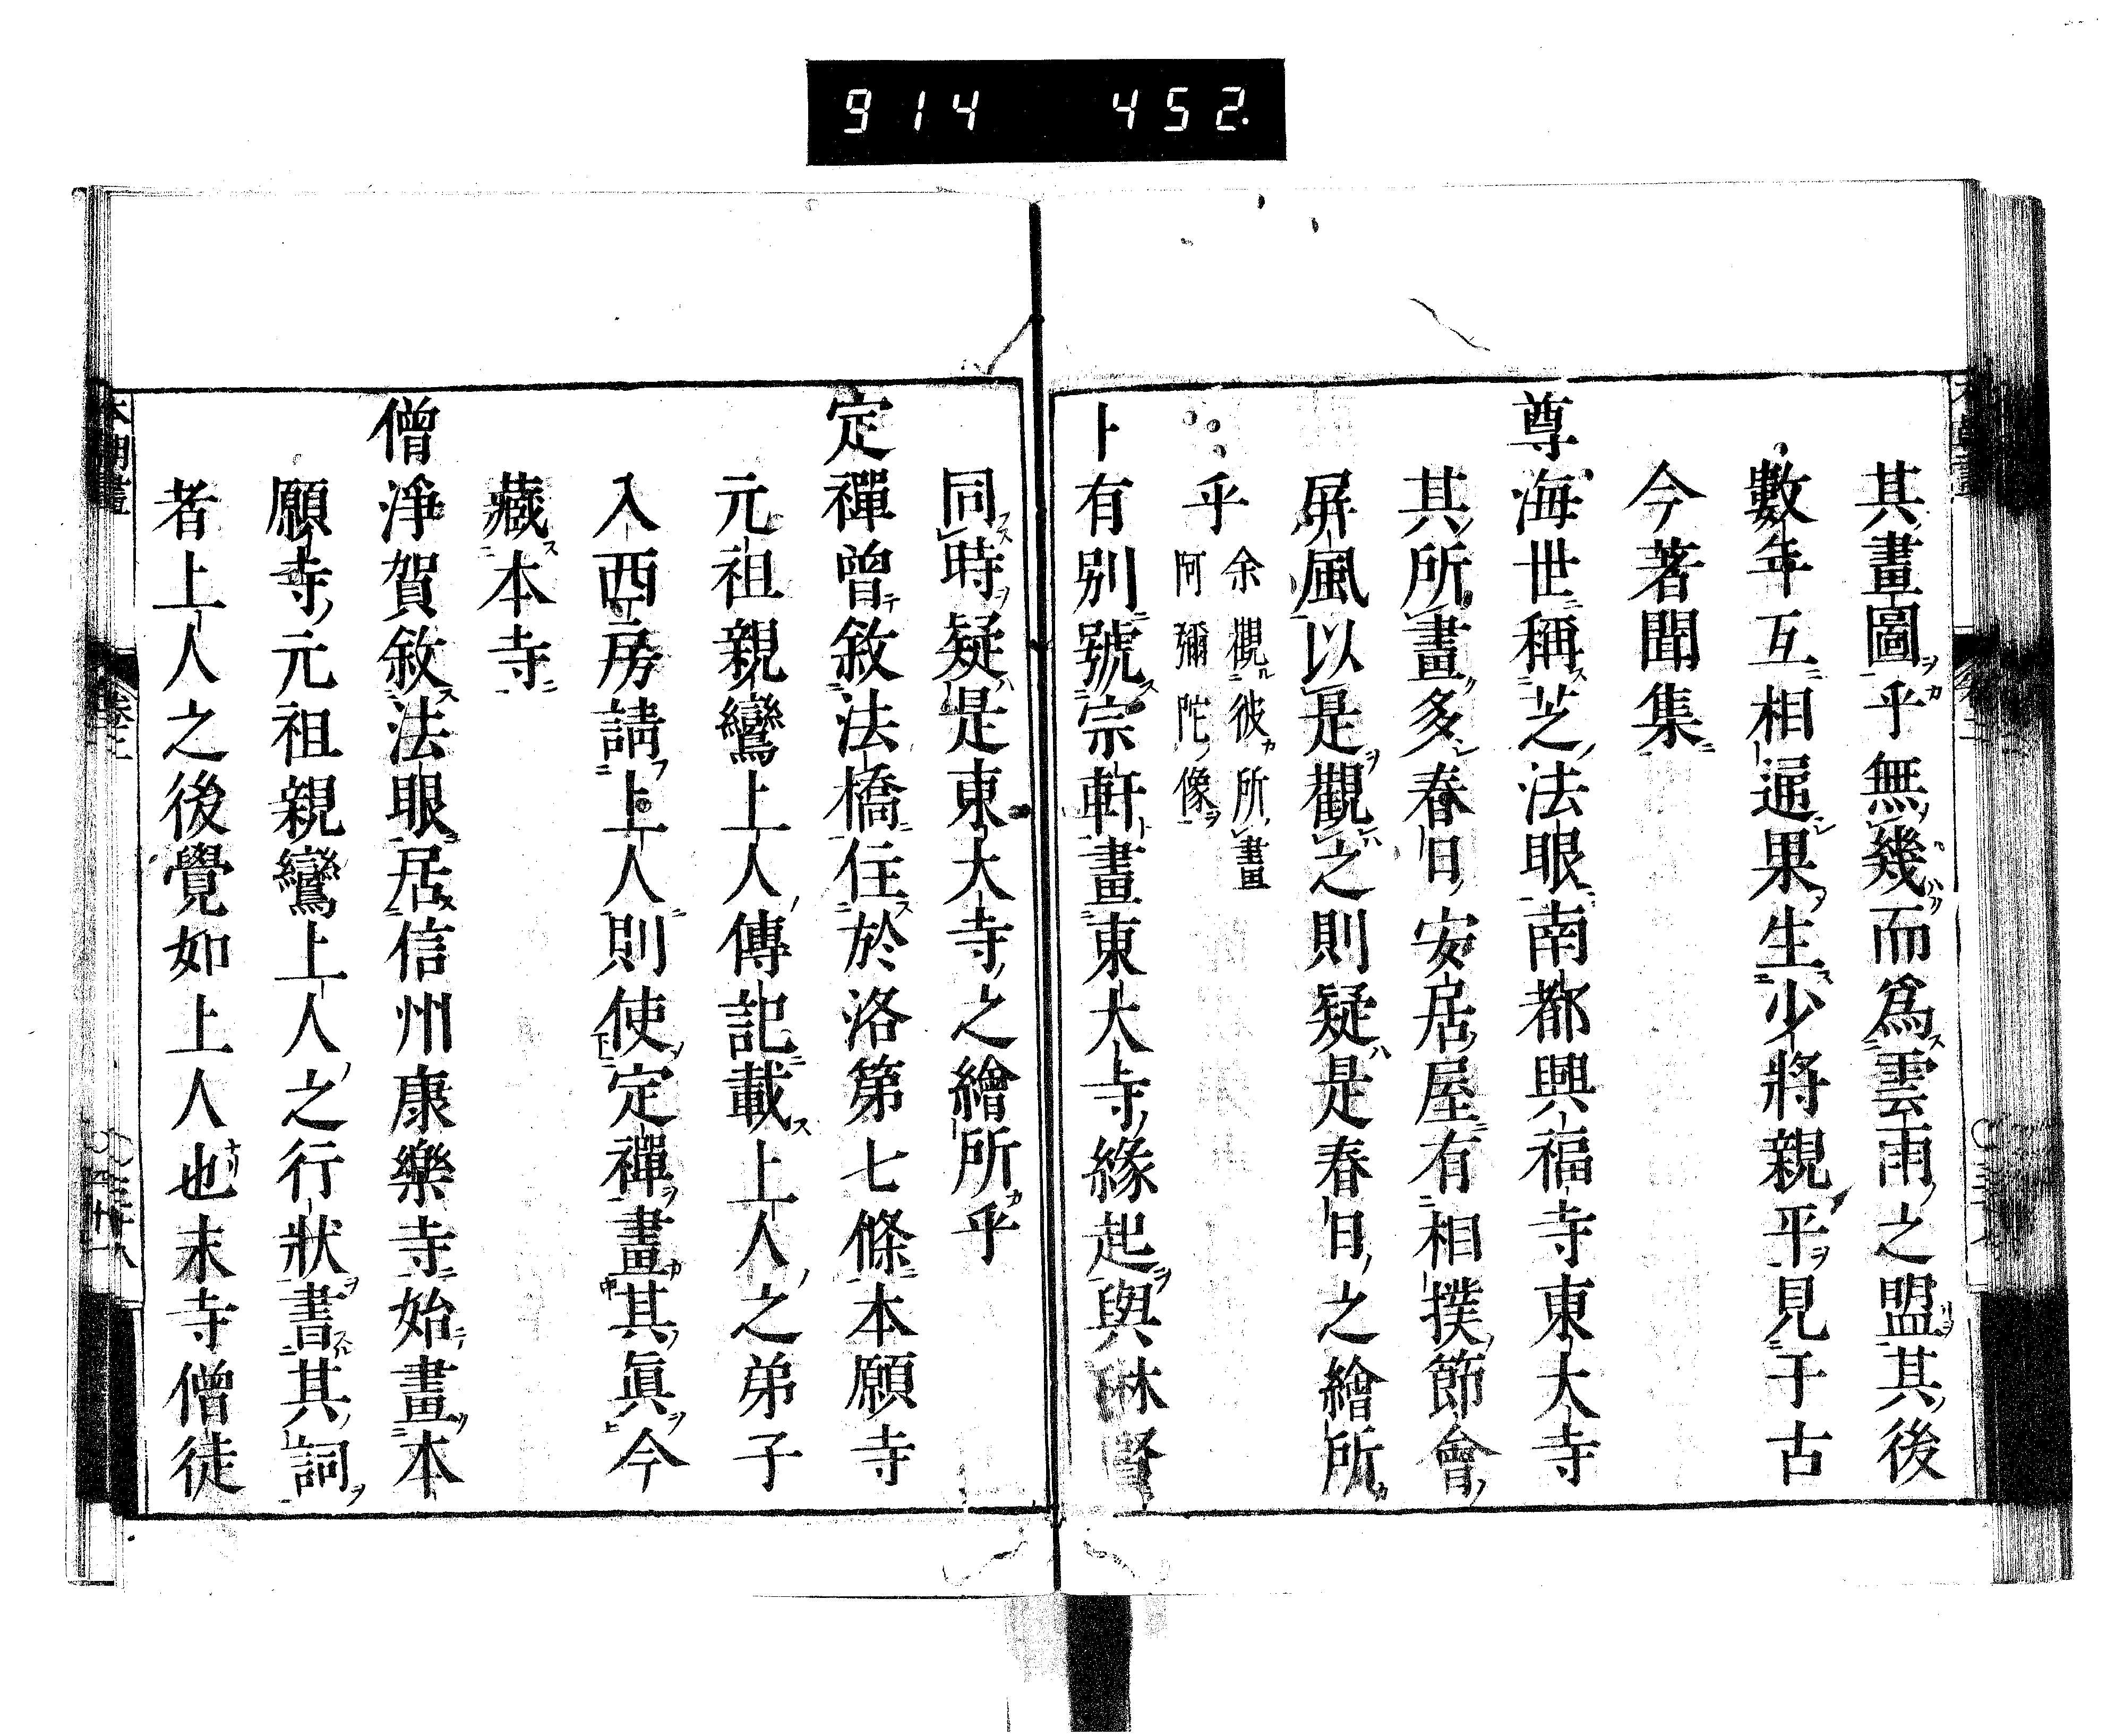 914 452.
其畫圖乎無幾而爲雲雨之盟其後
數年互相逼果生少將親平見于古
今著聞集
尊海世稱芝法眼南都興福寺東大寺
其所畫多春日安居屋有相撲節會
屏風以是觀之則疑是春日之繪所
乎
余觀彼所畫
阿彌陀像
卜有別號宗軒畫東大寺緣起與琳賢
同時疑是東大寺之繪所乎
定禪曾敘法橋住於洛第七條本願寺
元祖親鸞上人傳記載上人之弟子
入西房請上人則使定禪畫其眞今
藏本寺
僧淨賀敘法眼居信州康樂寺始畫本
願寺元祖親鸞上人之行狀書其詞
者上人之後覺如上人也末寺僧徒